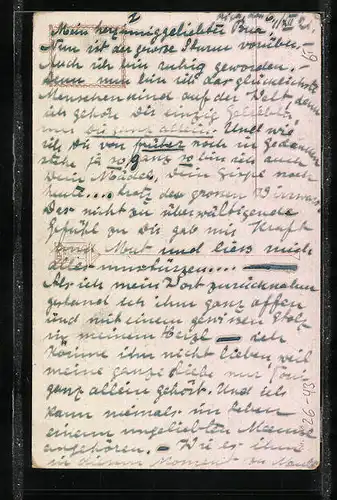 I
Mein herzinniggeliebter Bua
Nun ist der grosse Sturm vorüber.
Auch ich bin ruhig geworden.
Denn nun bin ich das glücklichste
Menschenkind auf der Welt denn
ich gehöre Dir einzig Geliebter
nur Dir ganz allein. Und wie
ich Dir von früher noch in Gedanken
stehe ja so ganz so bin ich auch
Dein Mädel, Dein Gispl noch
heute.... trotz des grossen
Das nicht zu überwältigende
Gefühl zu Dir gab mir Kraft
und Mut und liess mich
alles umstürzen....
Als ich mein Wort zurücknahm
gestand ich ihm ganz offen
und mit einem gewissen Stolz
in meinem Herzl — ich
könne ihn nicht lieben weil
meine ganze Liebe nur
ganz allein gehört. Und ich
kann niemals im Leben
einem ungeliebten Manne
angehören. — Wie es ihm
in diesem Moment zu Mute